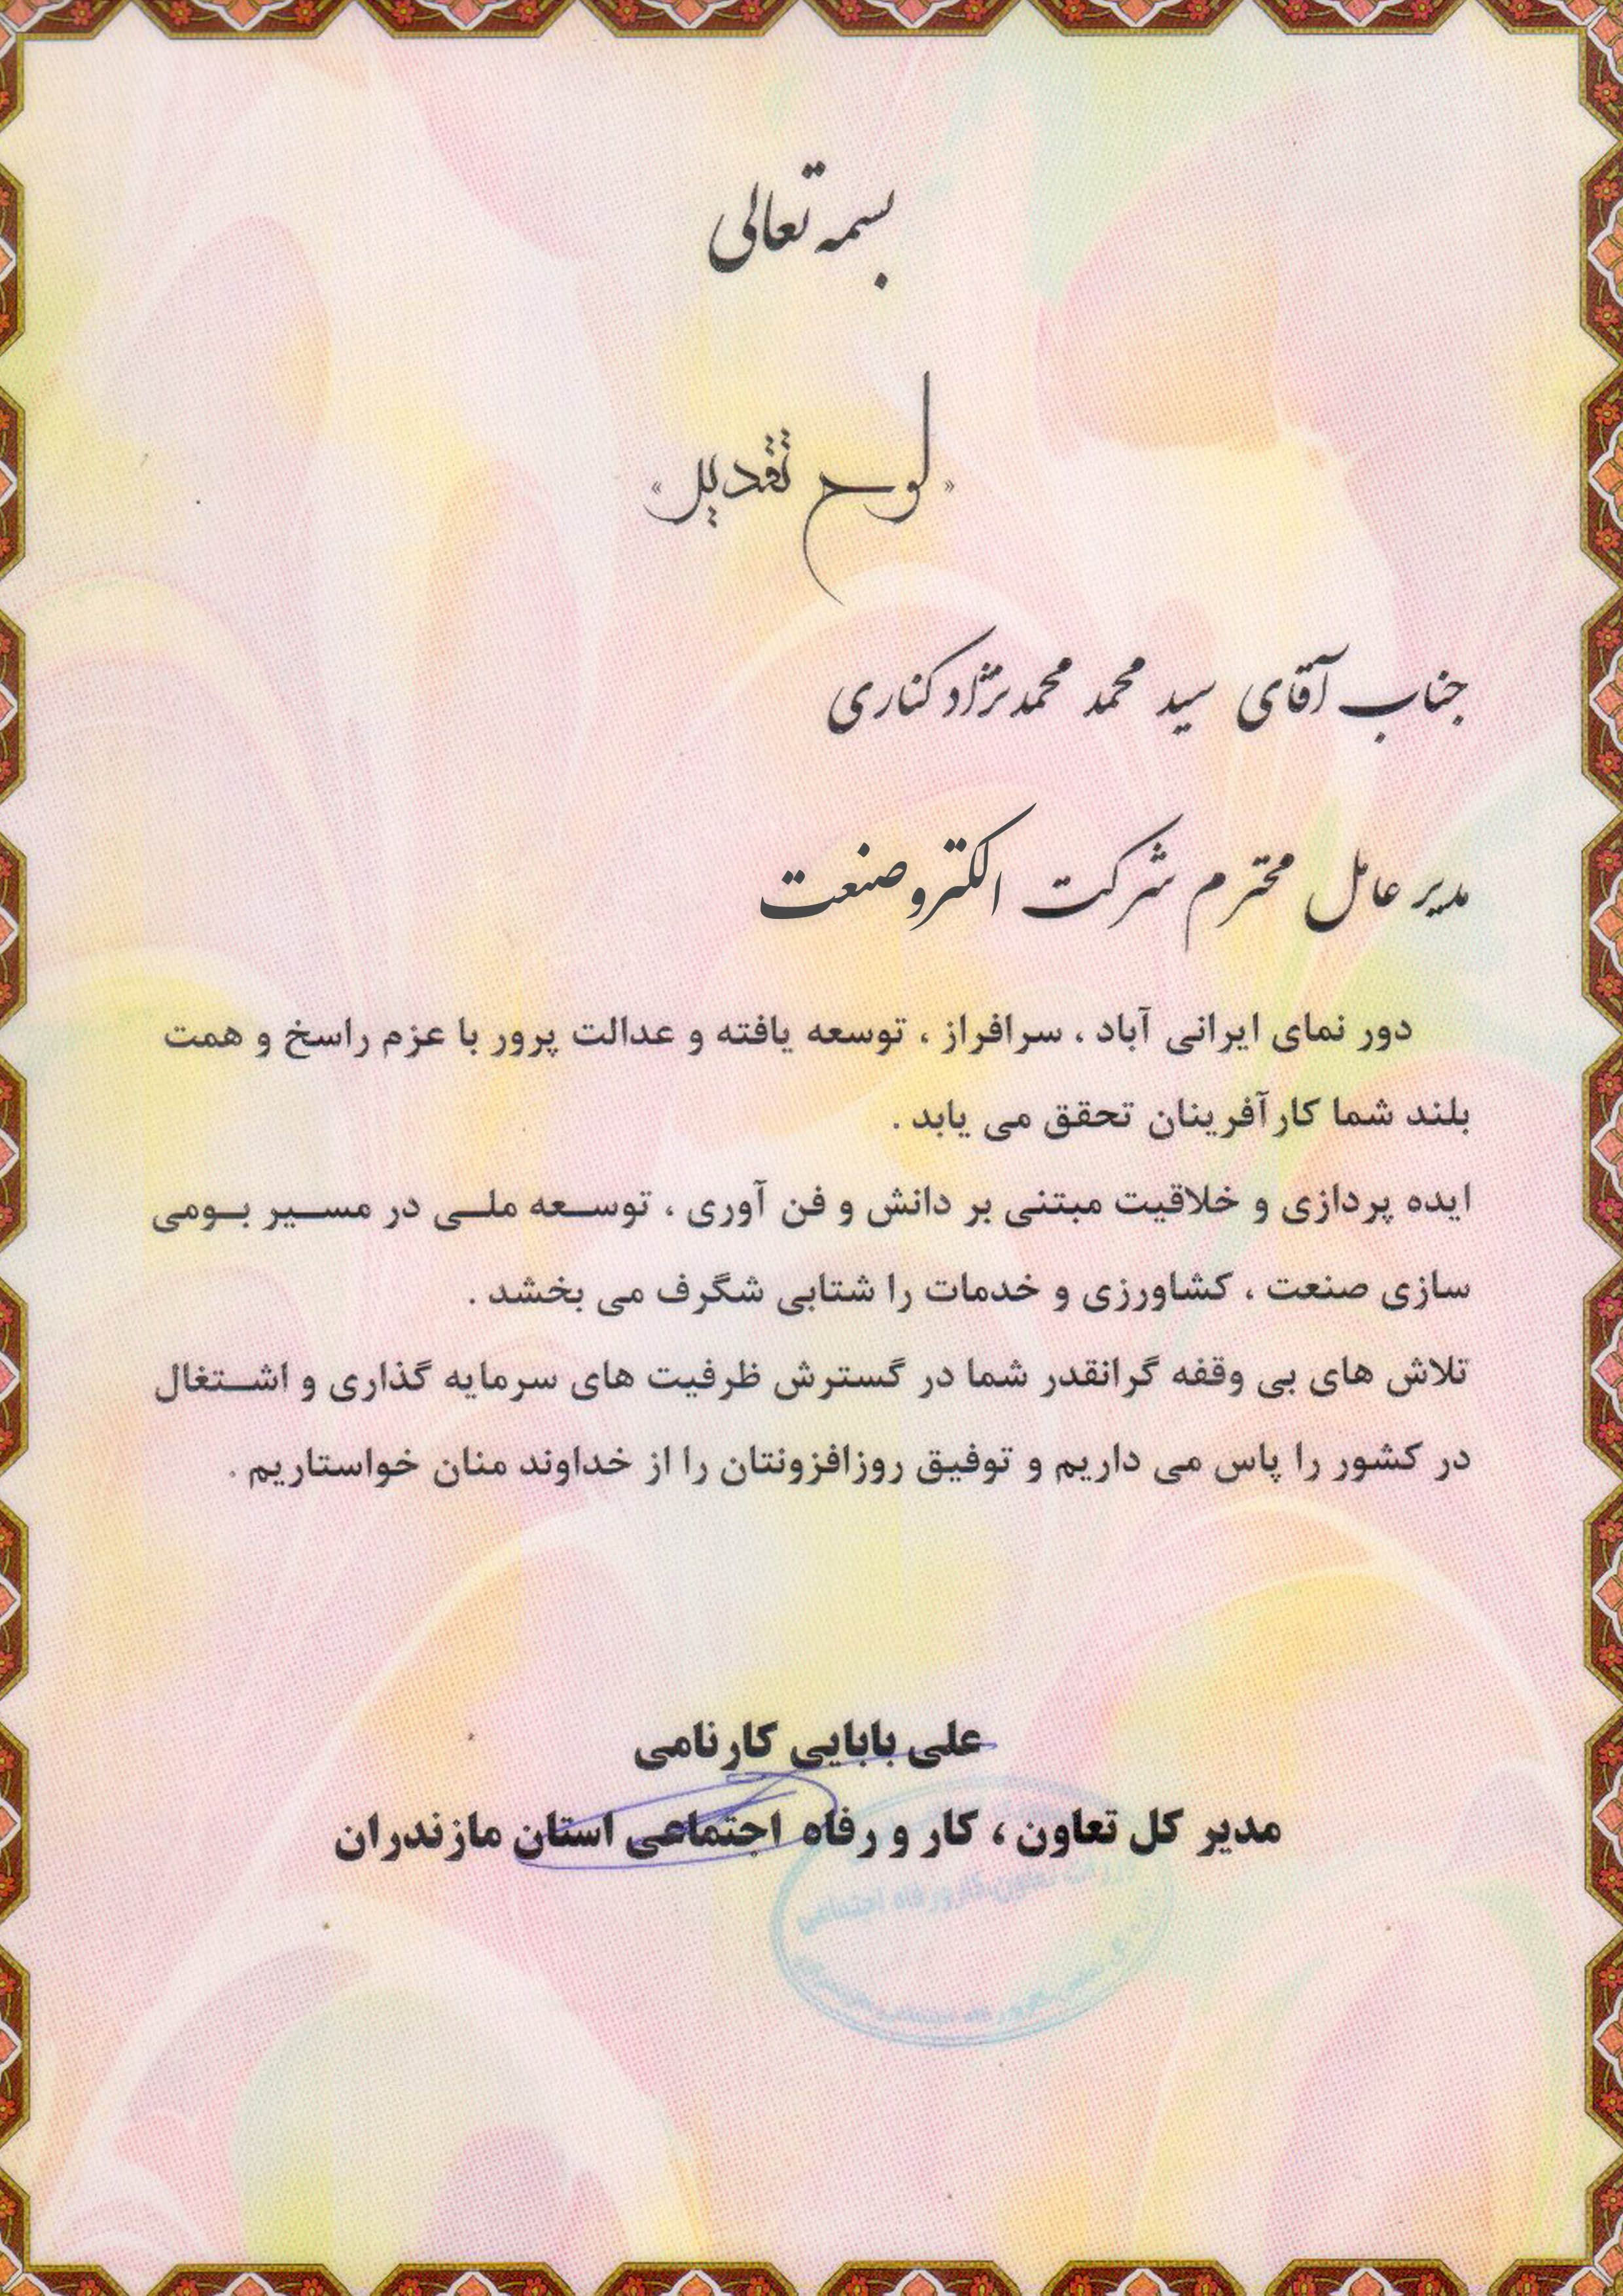 بسمه تعالی
«لوح تقدیر»
جناب آقای سید محمد محمدنژاد کناری
مدیر عامل محترم شرکت الکترو صنعت
دور نمای ایرانی آباد ، سرافراز ، توسعه یافته و عدالت پرور با عزم راسخ و همت
بلند شما کارآفرینان تحقق می یابد .
ایده پردازی و خلاقیت مبتنی بر دانش و فن آوری ، توسعه ملی در مسیر بومی
سازی صنعت ، کشاورزی و خدمات را شتابی شگرف می بخشد .
تلاش های بی وقفه گرانقدر شما در گسترش ظرفیت های سرمایه گذاری و اشتغال
در کشور را پاس می داریم و توفیق روزافزونتان را از خداوند منان خواستاریم .
علی بابایی کارنامی
مدیر کل تعاون ، کار و رفاه اجتماعی استان مازندران
تعاون،کارورفاه اجتماعی